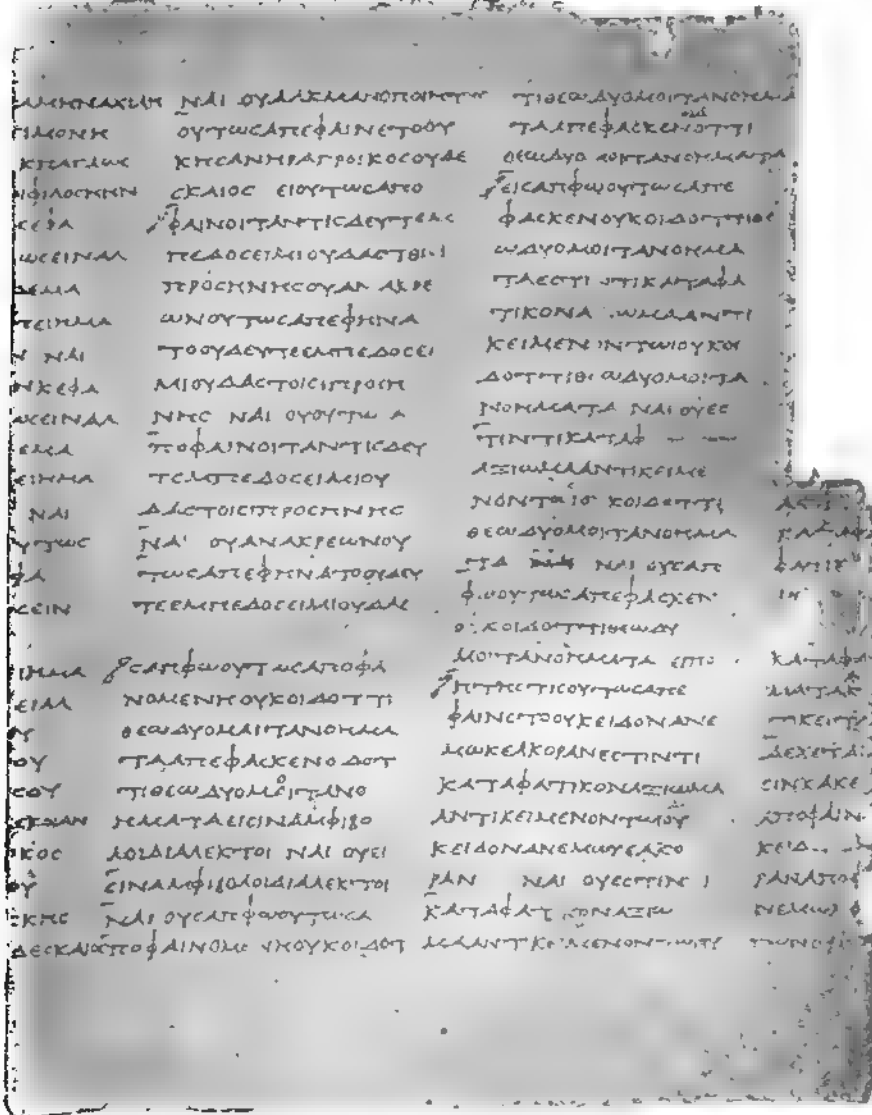 ΤΙΜΟΝΗ
ΚΕΦΑ
ΩϹΕΙΝΑΛ
ΔΕΜΑ
ΝΑΙ
ΝΚΕΦΑ
ΩϹΕΙΝΑΛ
ΕΜΑ
ΕΙΗΜΑ
ΝΑΙ
ΥΤΩϹ
ΦΑ
ϹΕΙΝ
ΙΗΜΑ
ΕΙΑΛ
ΟΥ
ϹΟΥ
ΚΟϹ
ΟΥ
ΕΚΗϹ
ΔΕϹΚΑΙΟ
ΝΑΙ ΟΥΑΛΚΜΑΝΟΠΟΙΗΤΗϹ
ΟΥΤΩϹΑΠΕΦΑΙΝΕΤΟΟΥ
ΚΗϹΑΝΗΡΑΓΡΟΙΚΟϹΟΥΔΕ
ϹΚΑΙΟϹ ΕΙΟΥΤΩϹΑΠΟ
ΦΑΙΝΟΙΤΑΝΤΙϹΔΕΥΤΕΑϹ
ΠΕΔΟϹΕΙΜΙΟΥΔΑϹΤΟΙϹΙ
ΠΡΟϹΗΝΗϹΟΥΑΝΑΚΡΕ
ΩΝΟΥΤΩϹΑΠΕΦΗΝΑ
ΤΟΟΥΔΕΥΤΕΕΜΠΕΔΟϹΕΙ
ΜΙΟΥΔΑϹΤΟΙϹΙΠΡΟϹΗ
ΝΗϹ ΝΑΙ ΟΥΟΥΤΩ Α
ΠΟΦΑΙΝΟΙΤΑΝΤΙϹΔΕΥ
ΤΕΜΠΕΔΟϹΕΙΜΙΟΥ
ΔΑϹΤΟΙϹΙΠΡΟϹΗΝΗϹ
ΝΑΙ ΟΥΑΝΑΚΡΕΩΝΟΥ
ΤΩϹΑΠΕΦΗΝΑΤΟΟΥΔΕΥ
ΤΕΕΜΠΕΔΟϹΕΙΜΙΟΥΔΑϹ
ϹΑΠΦΩΟΥΤΩϹΑΠΟΦΑ
ΝΟΜΕΝΗΟΥΚΟΙΔΟΤΤΙ
ΘΕΩΔΥΟΜΑΙΤΑΝΟΗΜΑ
ΤΑΑΠΕΦΑϹΚΕΝΟ ΔΟΤ
ΤΙΘΕΩΔΥΟΜΟΙΤΑΝΟ
ΗΜΑΤΑΕΙϹΙΝΑΜΦΙΒΟ
ΛΟΙΔΙΑΛΕΚΤΟΙ ΝΑΙ ΟΥΕΙ
ϹΙΝΑΜΦΙΒΟΛΟΙΔΙΑΛΕΚΤΟΙ
ΝΑΙ ΟΥϹΑΠΦΩΟΥΤΩϹΑ
ΠΟΦΑΙΝΟΜΕΝΗΟΥΚΟΙΔΟΤ
ΤΙΘΕΩΔΥΟΜΟΙΤΑΝΟΗΜΑ
ΤΑΑΠΕΦΑϹΚΕΝΟΤΤΙ
ΘΕΩΔΥΟ ΜΟΙΤΑΝΟΗΜΑΤΑ
ΕΙϹΑΠΦΩΟΥΤΩϹΑΠΕ
ΦΑϹΚΕΝΟΥΚΟΙΔΟΤΤΙΘΕ
ΩΔΥΟΜΟΙΤΑΝΟΗΜΑ
ΤΑΕϹΤΙ ΤΙΚΑΤΑΦΑ
ΤΙΚΟΝΑ ΩΜΑΑΝΤΙ
ΚΕΙΜΕΝΟΝΤΩΙΟΥΚΟΙ
ΔΟΤΤΙΘΕΩΔΥΟΜΟΙΤΑ
ΝΟΗΜΑΤΑ ΝΑΙ ΟΥΕϹ
ΤΙΝΤΙΚΑΤΑΦ
ΑΞΙΩΜΑΑΝΤΙΚΕΙΜΕ
ΝΟΝΤΩΙΟ ΚΟΙΔΟΤΤΙ
ΘΕΩΔΥΟΜΟΙΤΑΝΟΗΜΑ
ΤΑ ΝΑΙ ΟΥϹΑΠ
ΦΩΟΥΤΩϹΑΠΕΦΑϹΚΕΝ
ΟΥΚΟΙΔΟΤΤΙΘΕΩΔΥ
ΜΟΙΤΑΝΟΗΜΑΤΑ ΕΙΠΟ
ΗΤΗϹΤΙϹΟΥΤΩϹΑΠΕ
ΦΑΙΝΕΤΟΟΥΚΕΙΔΟΝΑΝΕ
ΜΩΚΕΑΚΟΡΑΝΕϹΤΙΝΤΙ
ΚΑΤΑΦΑΤΙΚΟΝΑΞΙΩΜΑ
ΑΝΤΙΚΕΙΜΕΝΟΝΤΩΙΟΥ
ΚΕΙΔΟΝΑΝΕΜΩΚΕΑΚΟ
ΡΑΝ ΝΑΙ ΟΥΕϹΤΙΝ Ι
ΚΑΤΑΦΑΤ ΚΟΝΑΞΙΩ
ΜΑΑΝΤΙΚΕΙΜΕΝΟΝΤΩΙ
ΚΑΤΑΦΑ
ΚΑΤΑΦΑ
ΜΑΤΑΚ
ΤΙΚΕΙΤΑΙ
ΔΕΧΕΤΑΙ
ϹΙΝΚΑΚΕ
ΑΠΟΦΑΙΝ
ΚΕΙΔ
ΡΑΝΑΠΟΦ
ΝΕΜΩ